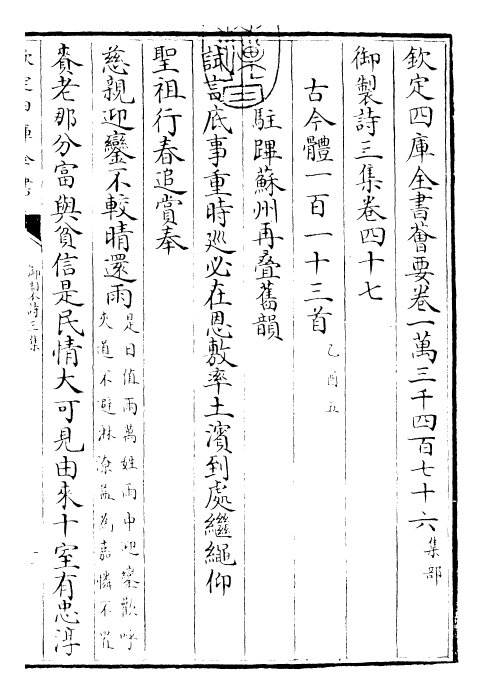 欽定四庫全書薈要卷一萬三千四百七十六集部
御製詩三集卷四十七
古今體一百一十三首乙酉五
駐蹕蘇州再疊舊韻
試言底事重時廵必在恩敷率土濱到處繼繩仰
聖祖行春追賞奉
慈親迎鑾不較晴還雨是日值雨萬姓雨中迎鑾歡呼
夾道不避淋潦益為嘉憐不置
賚老那分富與貧信是民情大可見由來十室有忠淳
欽定四庫全書
御製詩三集
一